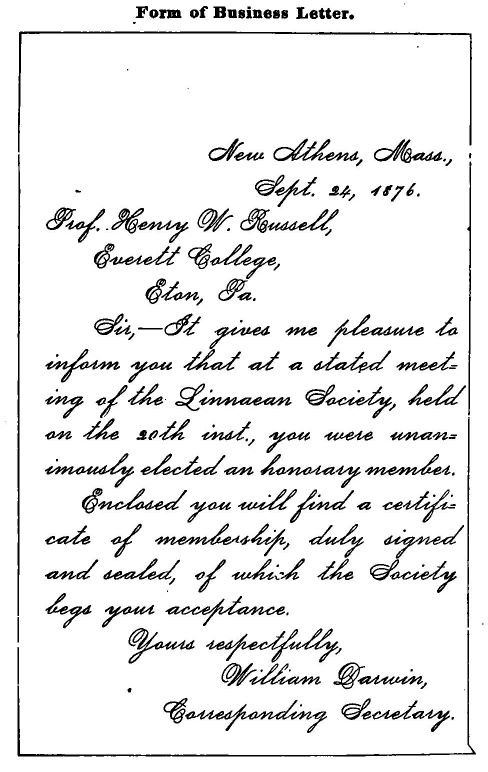 Form of Business Letter.
New Athens, Mass.,
Sept. 24, 1876.
Prof. Henry W. Russell,
Everett College,
Eton, Pa.
Sir,—It gives me pleasure to
inform you that at a stated meet=
ing of the Linnaean Society, held
on the 20th inst., you were unan=
imously elected an honorary member.
Enclosed you will find a certifi=
cate of membership, duly signed
and sealed, of which the Society
begs your acceptance.
Yours respectfully,
William Darwin,
Corresponding Secretary.